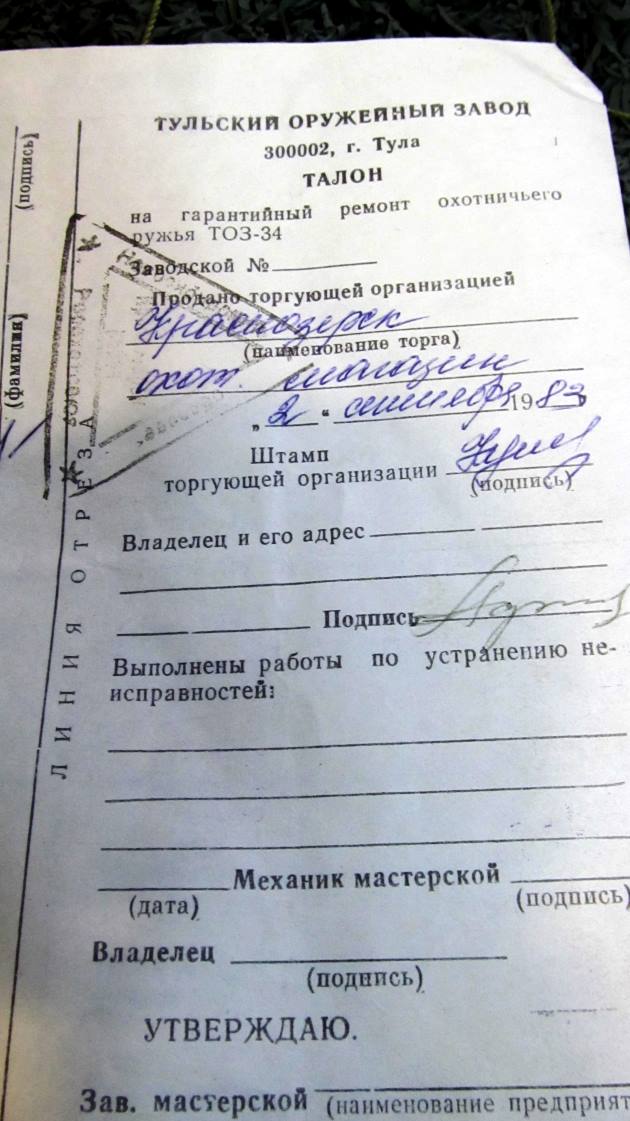 ТУЛЬСКИЙ ОРУЖЕЙНЫЙ ЗАВОД
300002, г. Тула
ТАЛОН
на гарантийный ремонт охотничьего
ружья ТОЗ-34
Заводской №
Продано торгующей организацией
Краснозерск
(наименование торга)
охот. магазин
„2“ сентября 1983
Штамп
торгующей организации
(подпись)
Владелец и его адрес
Подпись
Выполнены работы по устранению не-
исправностей:
Механик мастерской
(дата)
(подпись)
Владелец
(подпись)
УТВЕРЖДАЮ.
Зав. мастерской
(наименование предприят
ЛИНИЯ ОТРЕЗА
(подпись)
(фамилия)